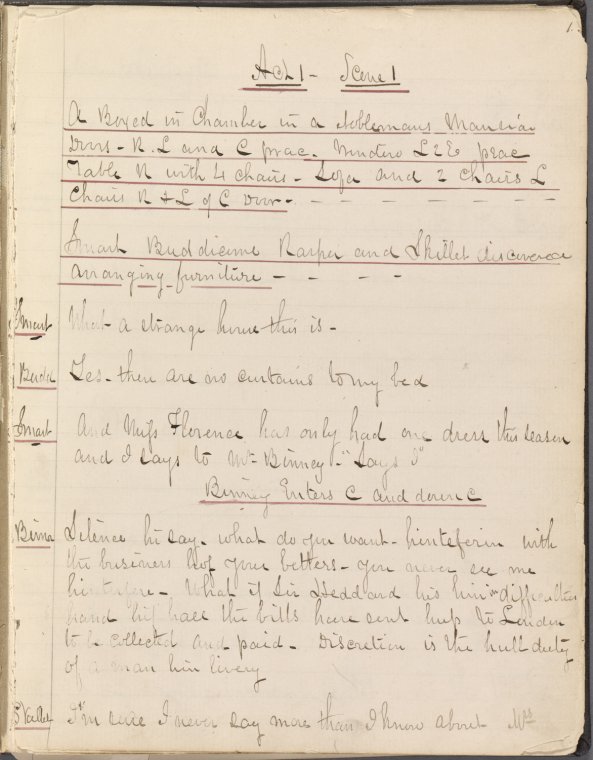 1.
Act 1 - Scene 1
A Boxed in Chamber in a Noblemans Mansion
Doors - R. L and C prac. Window L 2 E prac
Table R with 4 chairs - Sofa and 2 chairs L
Chairs R & L of C Door - - - - - - - -
Smart Buddicume Harper and Skillet discovered
arranging furniture - - - -
Smart What a strange house this is -
Budd Yes - there are no curtains to my bed
Smart And Miss Florence has only had one dress this season
and I says to Mr Binney - "Says I"
Binney Enters C and down C
Binna Silence hi say - what do you want - hinteferin with
the business hof your betters - you never see me
hinterfere - What if Sir Geddard his hin difficulties
hand hif hall the bills have sent hup to London
to be collected and paid - Discretion is the hull duty
of a man hin livery
Skillet I'm sure I never say more than I know about Mrs